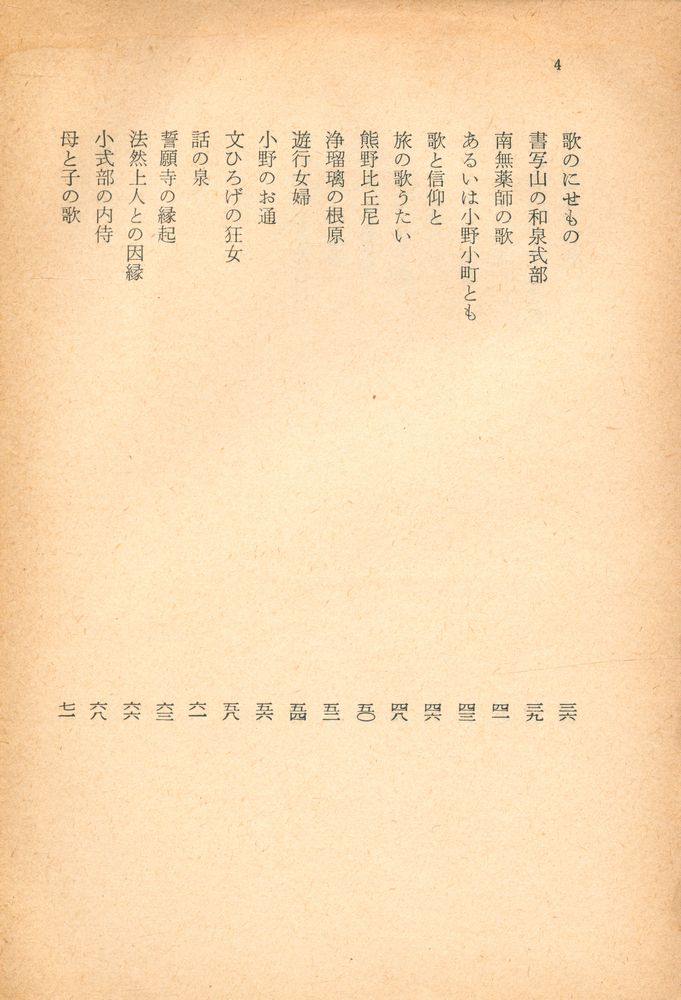 4
歌のにせもの 三六
書写山の和泉式部 三九
南無薬師の歌 四一
あるいは小野小町とも 四三
歌と信仰と 四六
旅の歌うたい 四八
熊野比丘尼 五〇
浄瑠璃の根原 五二
遊行女婦 五四
小野のお通 五六
文ひろげの狂女 五八
話の泉 六一
誓願寺の縁起 六三
法然上人との因縁 六六
小式部の内侍 六八
母と子の歌 七一